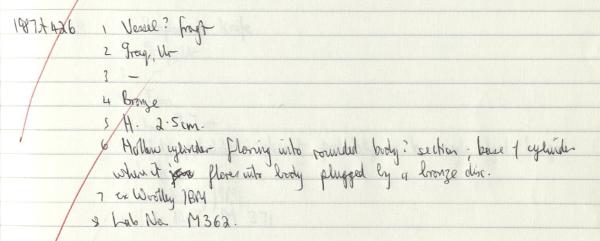 1987:426 1 Vessel? fragt
2 Iraq, Ur
3 –
4 Bronze
5 H. 2.5cm.
6 Hollow cylinder flaring into rounded body? section; base of cylinder
where it flares into body plugged by a bronze disc.
7 ex Woolley IBM
8 Lab No. M362.